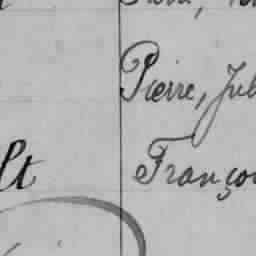 Pierre, Jul
lt Franço